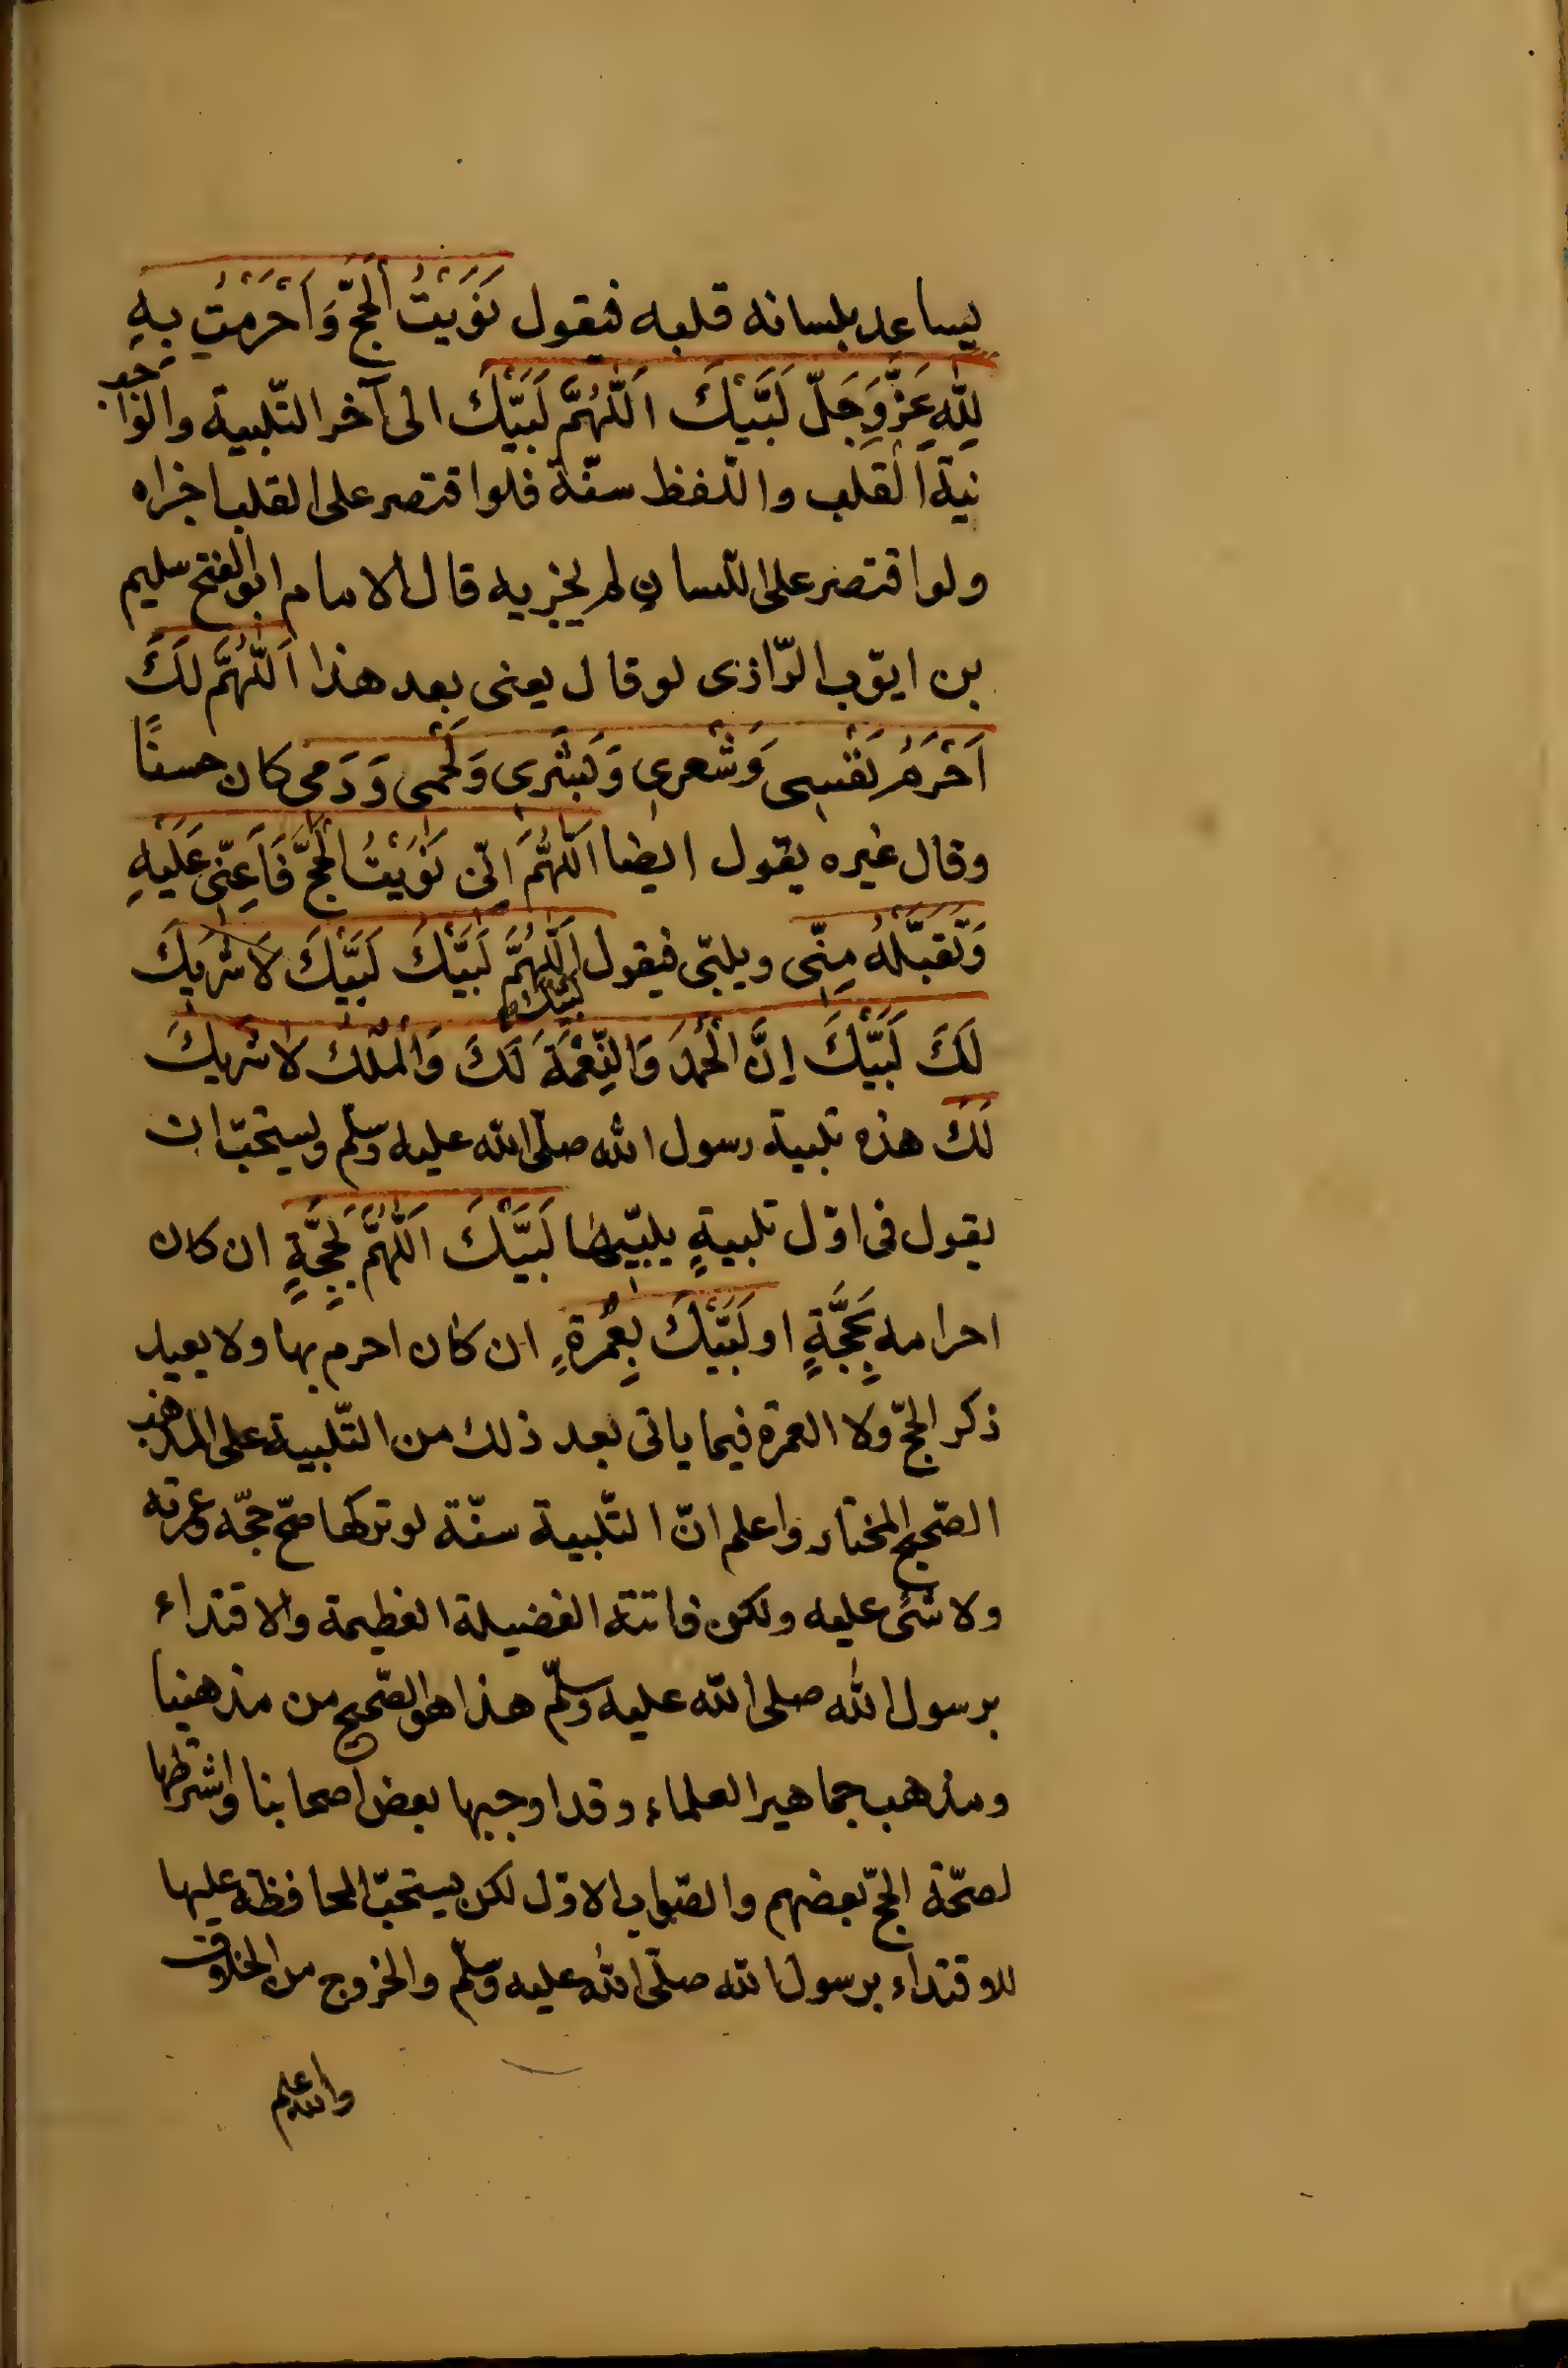 يساعد بلسانه قلبه فيقول نَوَيْتُ الْحَجَّ وَاَحْرَمْتُ بِهِ
لِلّٰهِ عَزَّ وَجَلَّ لَبَّيْكَ اَللّٰهُمَّ لَبَّيْكَ الى آخر التّلبية والواجب
نيّة القلب واللّفظ سنّة فلو اقتصر على القلب اجزاه
ولو اقتصر على اللّسان لم يجزيه قال الامام ابو الفتح سليم
بن ايّوب الرّازى لو قال يعنى بعد هذا اَللّٰهُمَّ لَكَ
اَحْرَمَ نَفْسِى وَشَعْرِى وَبَشَرِى وَلَحْمِى وَدَمِى كان حسنًا
وقال غيره يقول ايضا اَللّٰهُمَّ اِنِّى نَوَيْتُ الْحَجَّ فَاَعِنِّى عَلَيْهِ
وَتَقَبَّلْهُ مِنِّى ويلبّى فيقول اَللّٰهُمَّ لَبَّيْكَ لَبَّيْكَ لَا شَرِيكَ
لبّيك
لَكَ لَبَّيْكَ اِنَّ الْحَمْدَ وَالنِّعْمَةَ لَكَ وَالْمُلْكَ لَا شَرِيكَ
لَكَ هذه تلبية رسول الله صلّى الله عليه وسلّم ويستحبّ ان
يقول فى اوّل تلبيةٍ يلبّيها لَبَّيْكَ اَللّٰهُمَّ بِحَجَّةٍ ان كان
احرامه بِحَجَّةٍ او لَبَّيْكَ بِعُمْرَةٍ ان كان احرم بها ولا يعيد
ذكر الحجّ ولا العمرة فيما ياتى بعد ذلك من التّلبية على المذهب
الصّحيح المختار واعلم انّ التّلبية سنّة لو تركها صحّ حجّه وعمرته
ولا شئ عليه ولكن فاتته الفضيلة العظيمة والاقتداء
برسول الله صلى الله عليه وسلّم هذا هو الصّحيح من مذهبنا
ومذهب جماهير العلماء وقد اوجبها بعض اصحابنا واشترطها
لصحّة الحجّ بعضهم والصّواب الاوّل لكن يستحبّ المحافظة عليها
للاقتداء برسول الله صلّى الله عليه وسلّم والخروج من الخلاف
والله اعلم